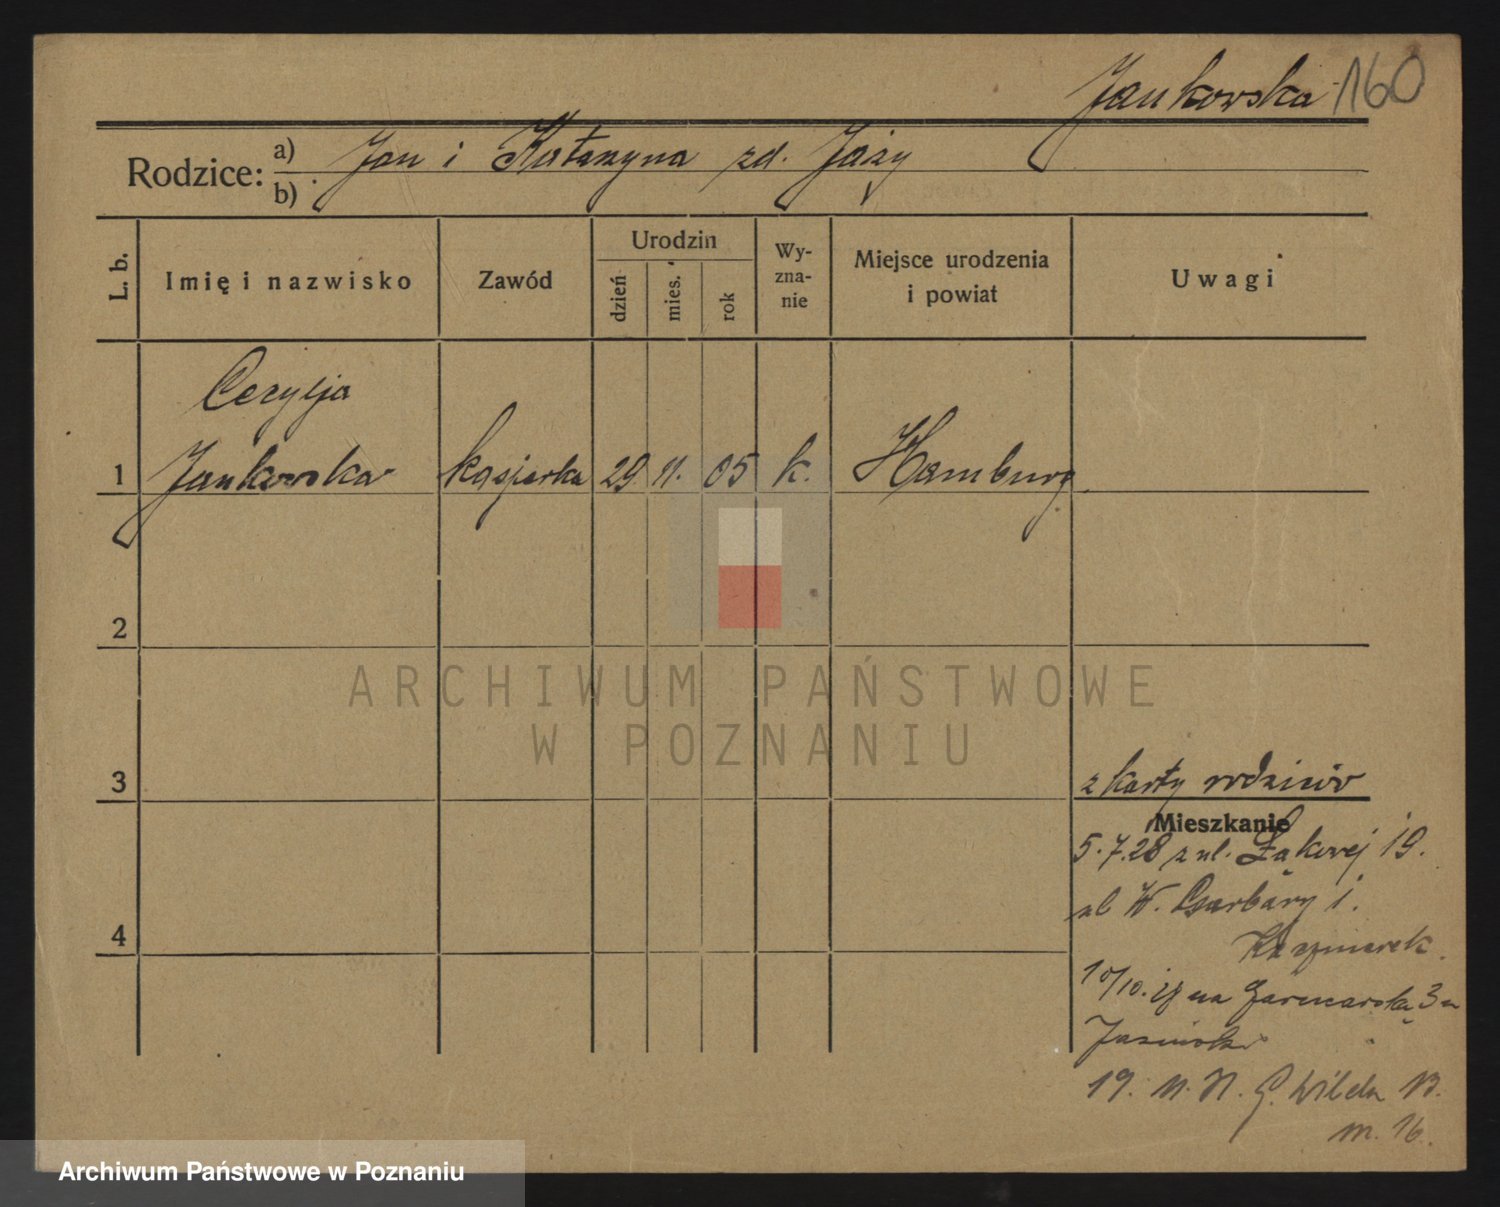 Jankowska 160
Rodzice: a) Jan i Katarzyna zd. Jaży
b)
L. b.
Imię i nazwisko
Zawód
Urodzin
dzień
mies.
rok
Wy-
zna-
nie
Miejsce urodzenia
i powiat
Uwagi
Cezylja
1 Jankowska kasjerka 29 11. 05 k. Hamburg
2
3
4
z karty rodziców
Mieszkanie
5.7.28 z ul. Łąkowej 19.
ul W. Garbary 1.
Kaczmarek.
10/10. na Garncarską 3
19. 11. G. Wilda 13.
m. 16.
ARCHIWUM PAŃSTWOWE
W POZNANIU
Archiwum Państwowe w Poznaniu